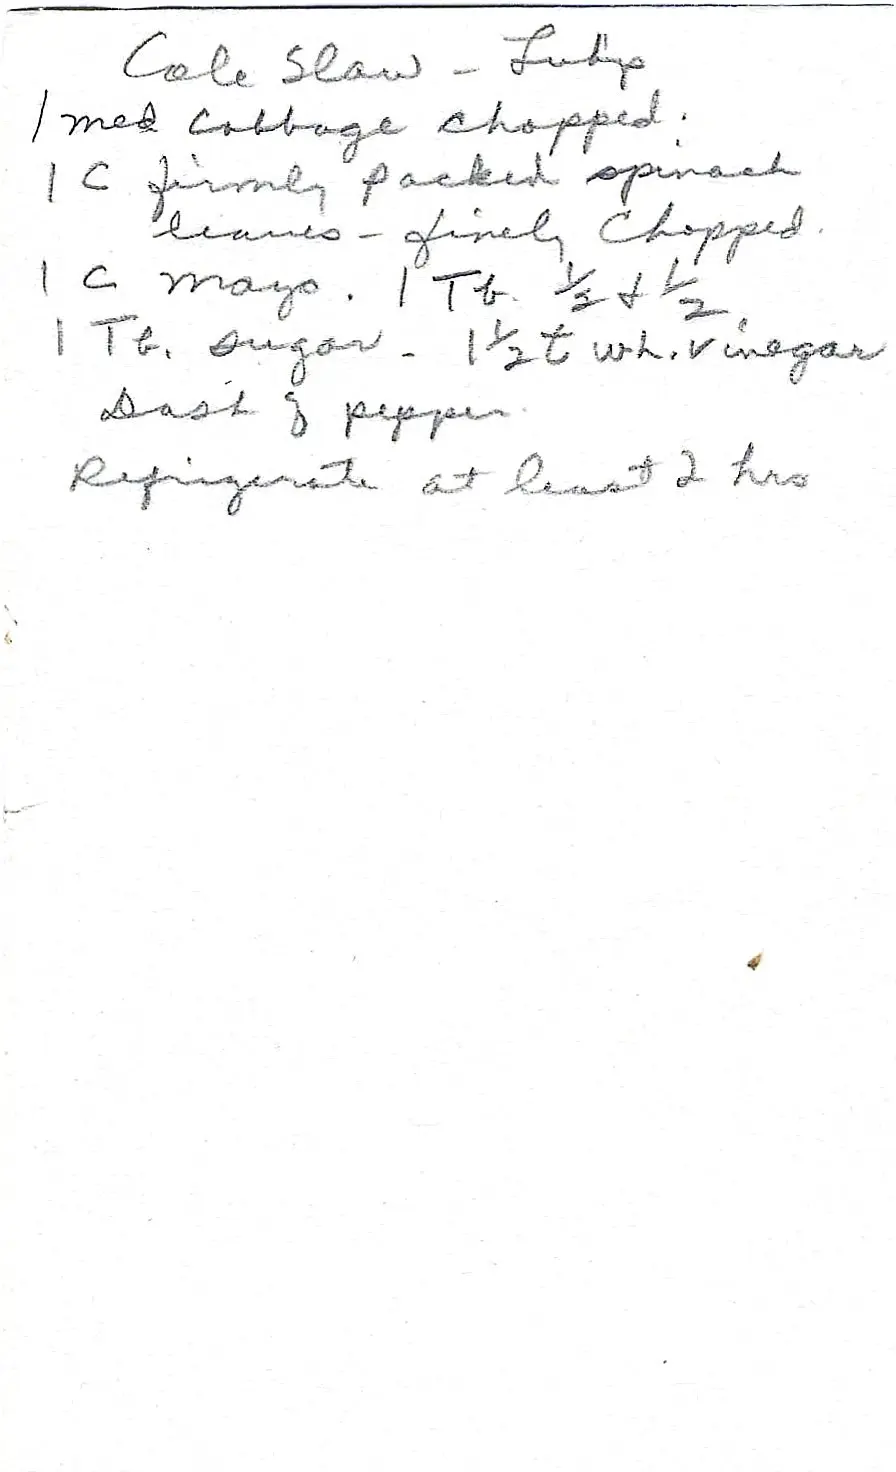 Cole Slaw - Lubys
1 med cabbage chopped.
1 C firmly packed spinach
leaves - finely chopped.
1 C mayo. 1 Tb. 1/2 & 1/2.
1 Tb. sugar - 1 1/2 t wh. vinegar
Dash of pepper
Refrigerate at least 2 hrs